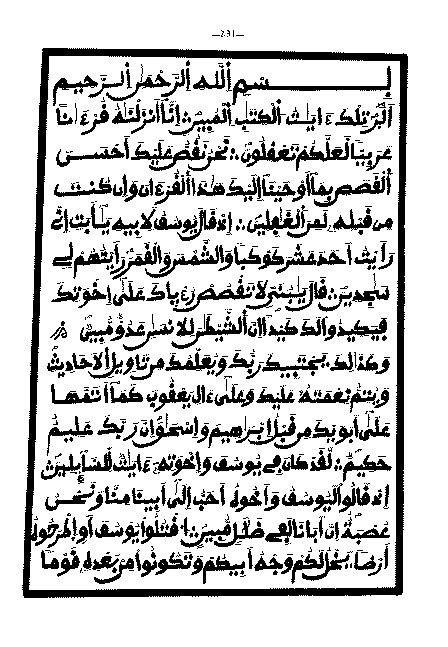 —231—
بسم الله الرحمن الرحيم
الر تلك ءايت الكتب المبين إنا أنزلنه قرءانا
عربيا لعلكم تعقلون نحن نقص عليك أحسن
القصص بما أوحينا إليك هذا القرءان وإن كنت
من قبله لمن الغفلين إذ قال يوسف لأبيه يأبت إني
رأيت أحد عشر كوكبا والشمس والقمر رأيتهم لي
سجدين قال يبني لا تقصص رءياك على إخوتك
فيكيدوا لك كيدا إن الشيطن للإنسن عدو مبين
وكذلك يجتبيك ربك ويعلمك من تأويل الأحاديث
ويتم نعمته عليك وعلى ءال يعقوب كما أتمها
على أبويك من قبل إبرهيم وإسحق إن ربك عليم
حكيم لقد كان في يوسف وإخوته ءايت للسائلين
إذ قالوا ليوسف وأخوه أحب إلى أبينا منا ونحن
عصبة إن أبانا لفي ضلل مبين اقتلوا يوسف أو اطرحوه
أرضا يخل لكم وجه أبيكم وتكونوا من بعده قوما